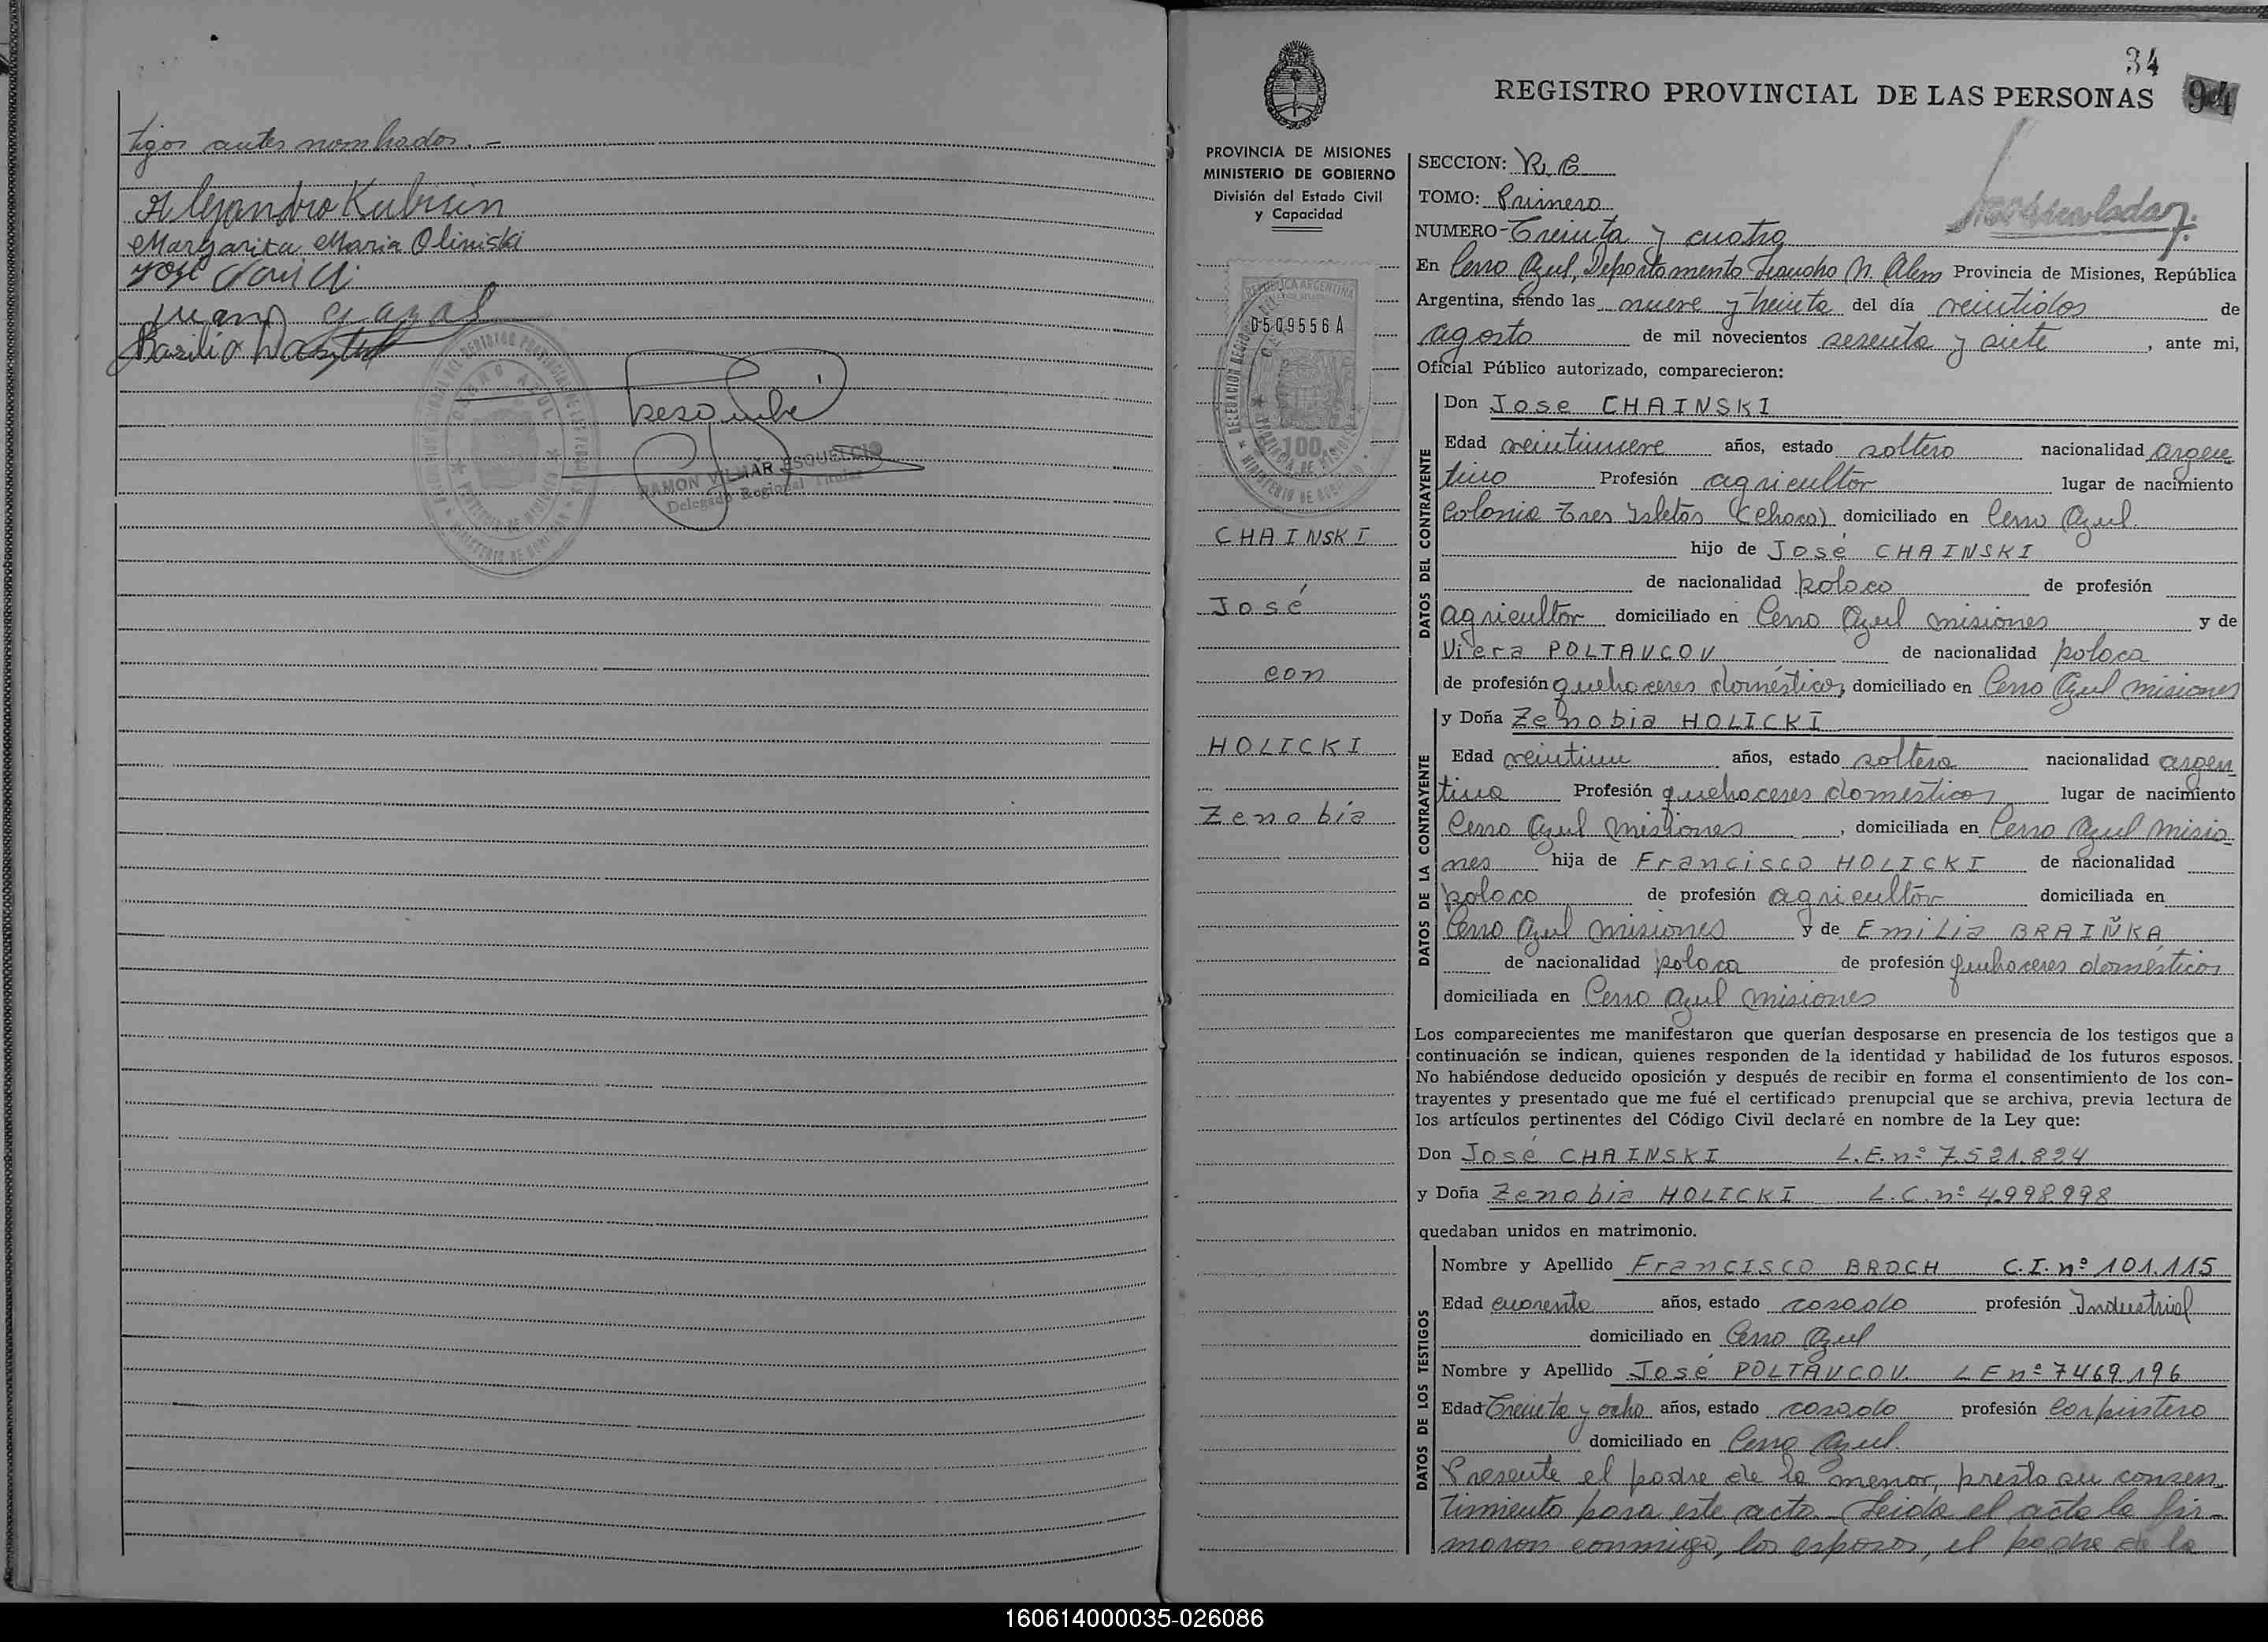 tigos antes nombrados. -
Margarita Maria Oliniski
RAMON VILMAR ESQUELCIO
Delegado Regional Titular
34
REGISTRO PROVINCIAL DE LAS PERSONAS 94
PROVINCIA DE MISIONES
MINISTERIO DE GOBIERNO
División del Estado Civil
y Capacidad
REPUBLICA ARGENTINA
0509556 A
100
CHAINSKI
José
con
HOLICKI
Zenobia
SECCION: R. C.
TOMO: Primero
NUMERO - Treinta y cuatro
En Cerro Azul, Departamento Leandro N. Alem Provincia de Misiones, República
Argentina, siendo las nueve y treinta del día veintidos de
agosto de mil novecientos sesenta y siete, ante mi,
Oficial Público autorizado, comparecieron:
DATOS DEL CONTRAYENTE
Don Jose CHAINSKI
Edad veintinueve años, estado soltero nacionalidad argen
tino Profesión agricultor lugar de nacimiento
Colonia Tres Isletas (chaco) domiciliado en Cerro Azul
hijo de José CHAINSKI
de nacionalidad polaco de profesión
agricultor domiciliado en Cerro Azul misiones y de
Viera POLTAVCOV de nacionalidad polaca
de profesión quehaceres domésticos, domiciliado en Cerro Azul misiones
DATOS DE LA CONTRAYENTE
y Doña Zenobia HOLICKI
Edad veintiun años, estado soltera nacionalidad argen
tina Profesión quehaceres domésticos lugar de nacimiento
Cerro Azul misiones, domiciliada en Cerro Azul Misio
nes hija de Francisco HOLICKI de nacionalidad
polaco de profesión agricultor domiciliada en
Cerro Azul misiones y de Emilia BRAIÑKA
de nacionalidad polaca de profesión quehaceres domésticos
domiciliada en Cerro Azul misiones
Los comparecientes me manifestaron que querían desposarse en presencia de los testigos que a
continuación se indican, quienes responden de la identidad y habilidad de los futuros esposos.
No habiéndose deducido oposición y después de recibir en forma el consentimiento de los con-
trayentes y presentado que me fué el certificado prenupcial que se archiva, previa lectura de
los artículos pertinentes del Código Civil declaré en nombre de la Ley que:
Don José CHAINSKI L.E. nº 7.521.824
y Doña Zenobia HOLICKI L.C. nº 4.998.998
quedaban unidos en matrimonio.
DATOS DE LOS TESTIGOS
Nombre y Apellido Francisco BROCH C.I. nº 101.115
Edad cuarenta años, estado casado profesión Industrial
domiciliado en Cerro Azul
Nombre y Apellido José POLTAVCOV. L E nº 7469.196
Edad Treinta y ocho años, estado casado profesión Carpintero
domiciliado en Cerro Azul
Presente el padre de la menor, presto su consen
timiento para este acto. - Leida el acta la fir-
maron conmigo, los esposos, el padre de la
160614000035-026086